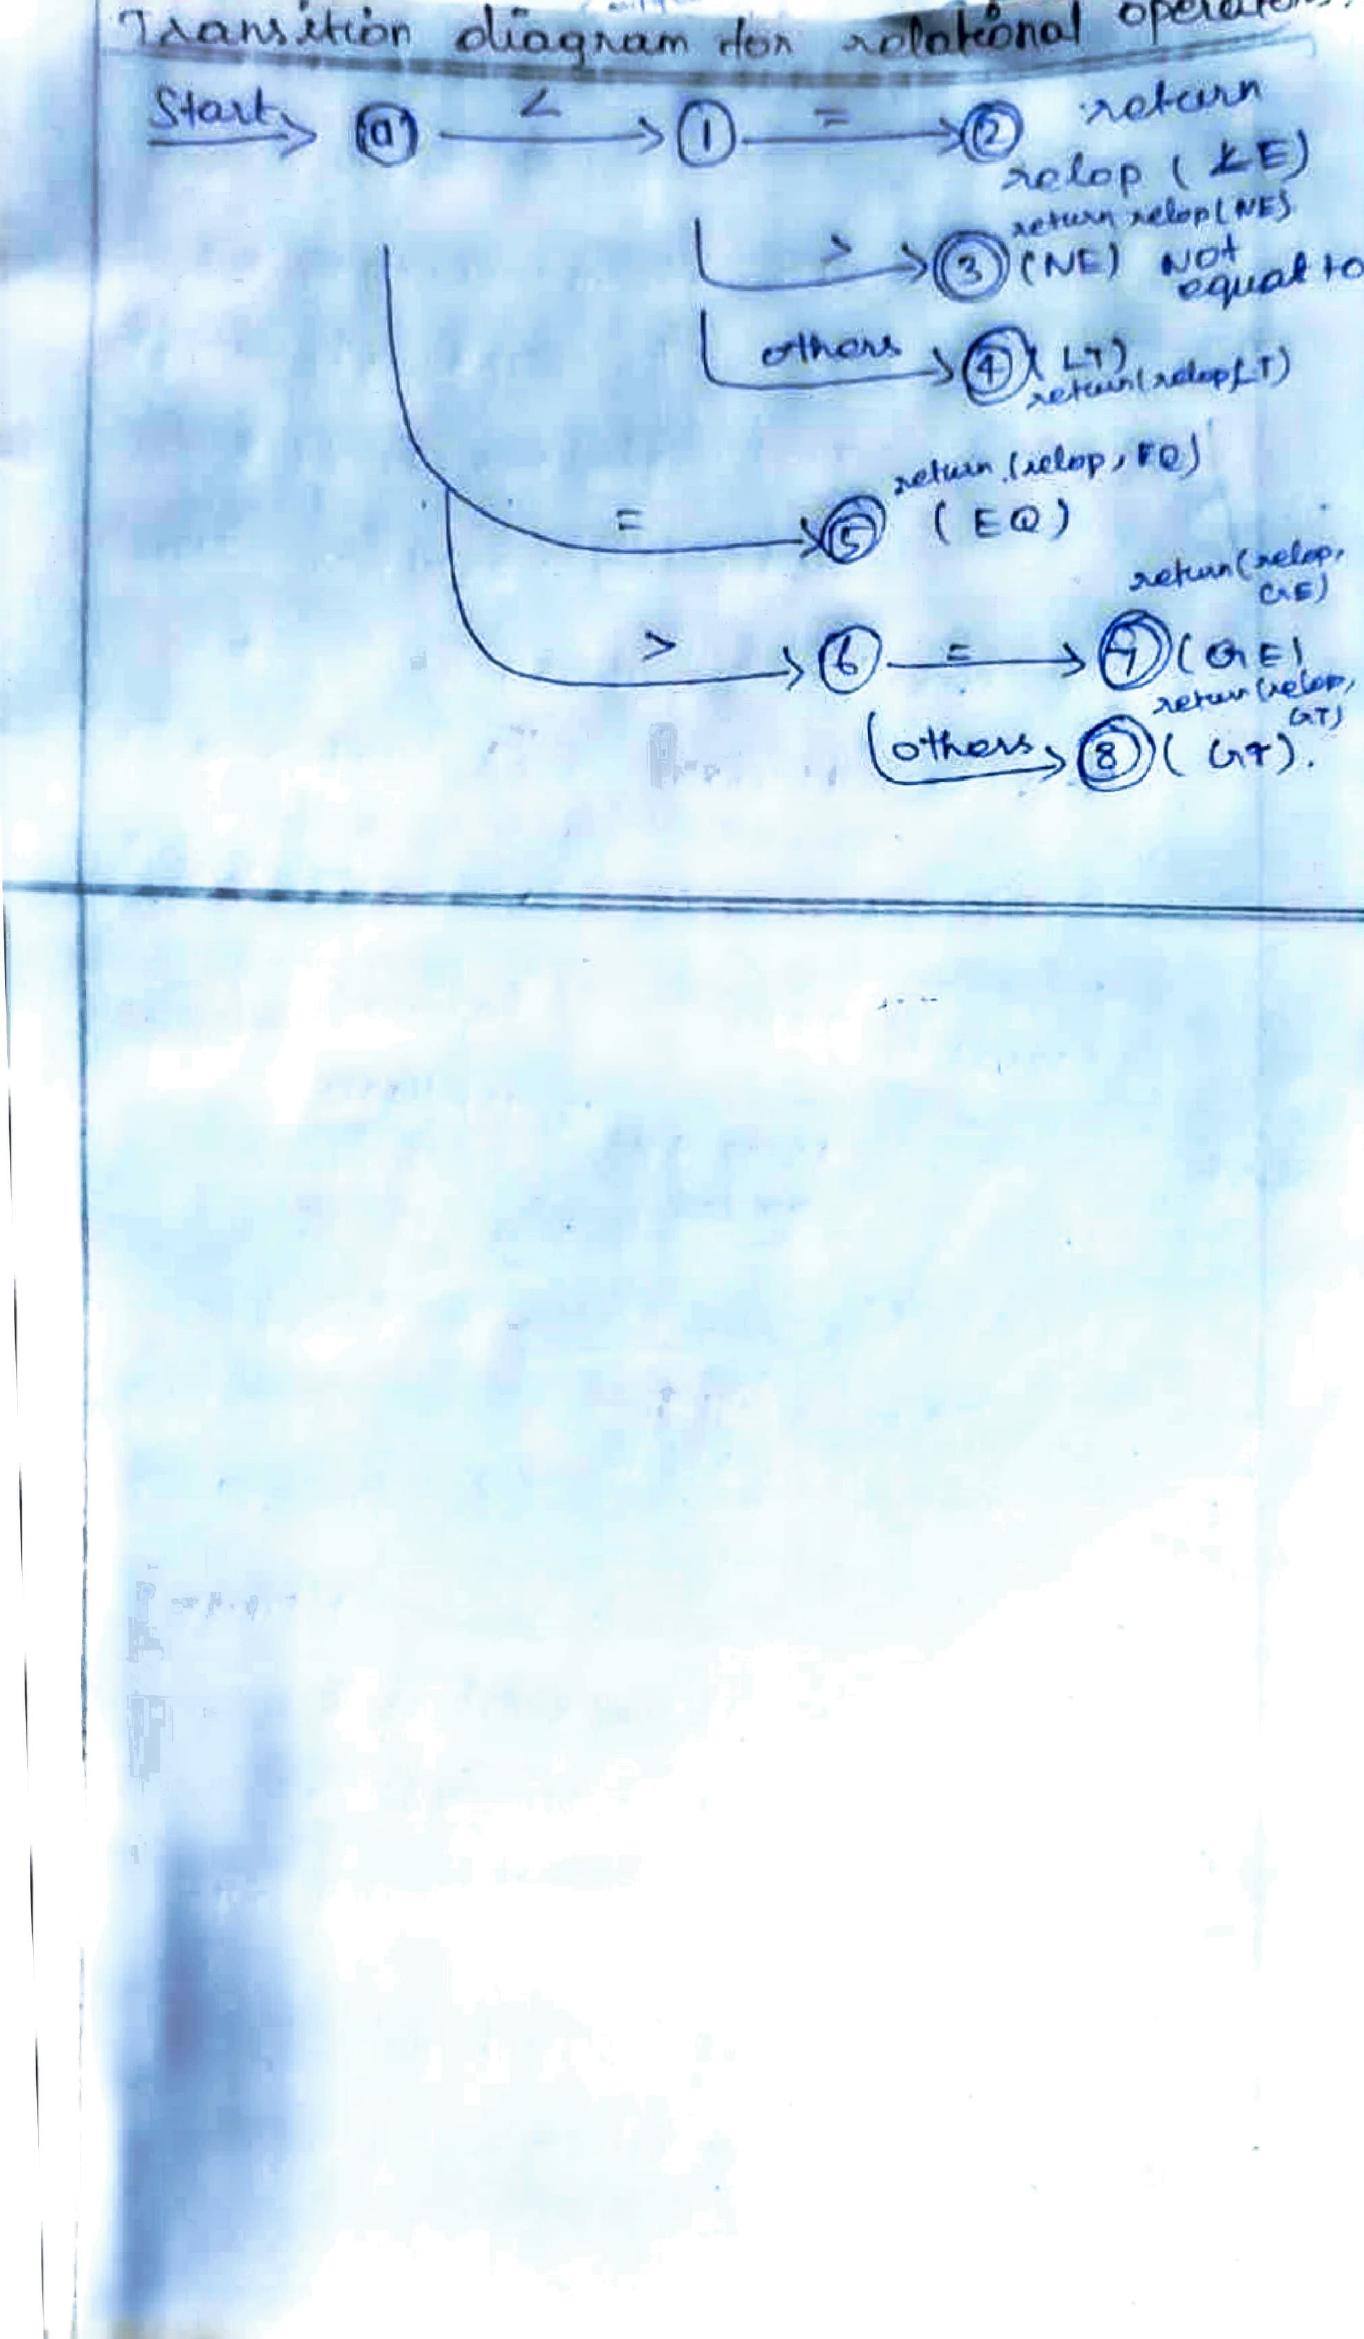 Transition diagram for relational operators.
Start a < 1 = 2 return
relop ( LE )
return relop (NE)
> 3 (NE) Not
equal to
others 4 ( LT)
return (relop, LT)
return (relop, EQ)
= 5 ( EQ )
return (relop,
GE)
> 6 = 7 ( GE )
return (relop,
GT)
others 8 ( GT).